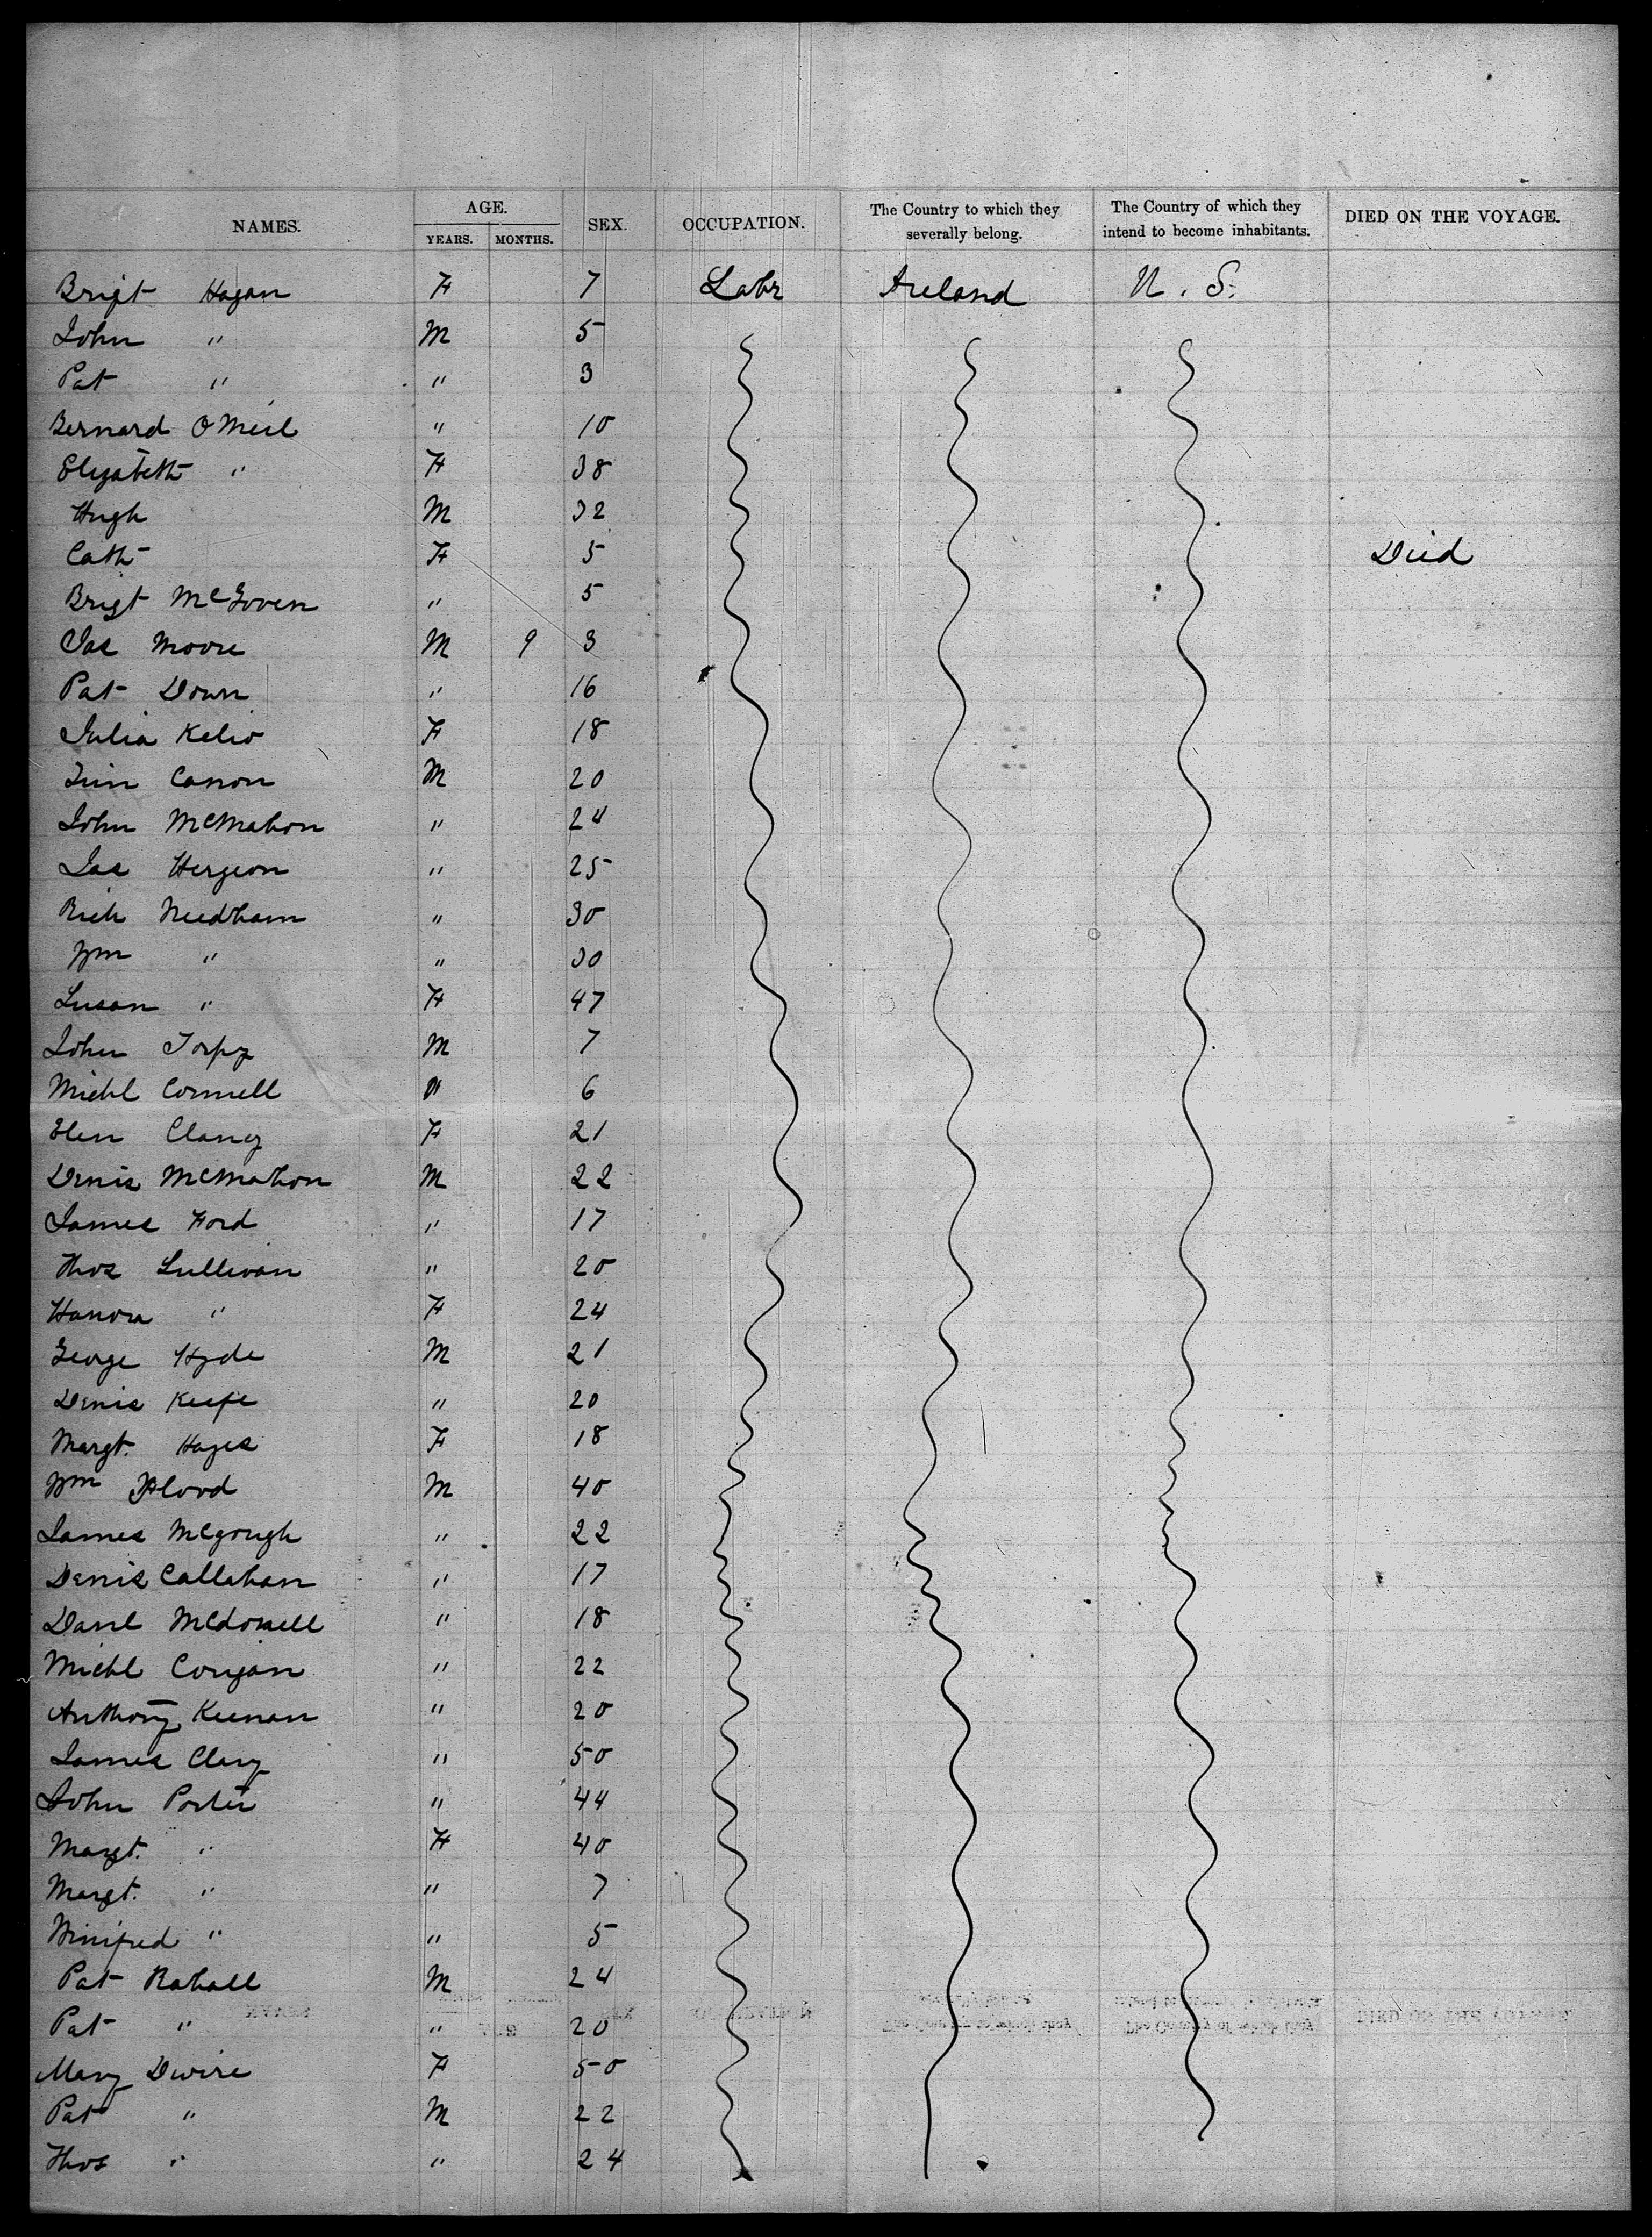 NAMES. AGE. YEARS. MONTHS. SEX. OCCUPATION. The Country to which they severally belong. The Country of which they intend to become inhabitants. DIED ON THE VOYAGE.
Brigt Hagan F 7 Labr Ireland U. S.
John " M 5
Pat " " 3
Bernard O Neil " 10
Elizabeth " F 38
Hugh M 32
Cath F 5 Died
Brigt McGoven " 5
Jas Moore M 9 3
Pat Down " 16
Julia Kelio F 18
Tim Canon M 20
John McMahon " 24
Jas Hergeon " 25
Rich Needham " 30
Wm " " 30
Susan " F 47
John Torpy M 7
Michl Connell " 6
Elen Clancy F 21
Denis McMahon M 22
James Ford " 17
Thos Sullivan " 20
Hanora " F 24
George Hyde M 21
Denis Keefe " 20
Margt. Hayes F 18
Wm Flood M 40
James McGough " 22
Denis Callahan " 17
Danl McDonell " 18
Michl Corigan " 22
Anthony Keenan " 20
James Clary " 50
John Porter " 44
Margt. " F 40
Margt. " " 7
Winifred " " 5
Pat Rahall M 24
Pat " " 20
Mary Dwire F 50
Pat " M 22
Thos " " 24